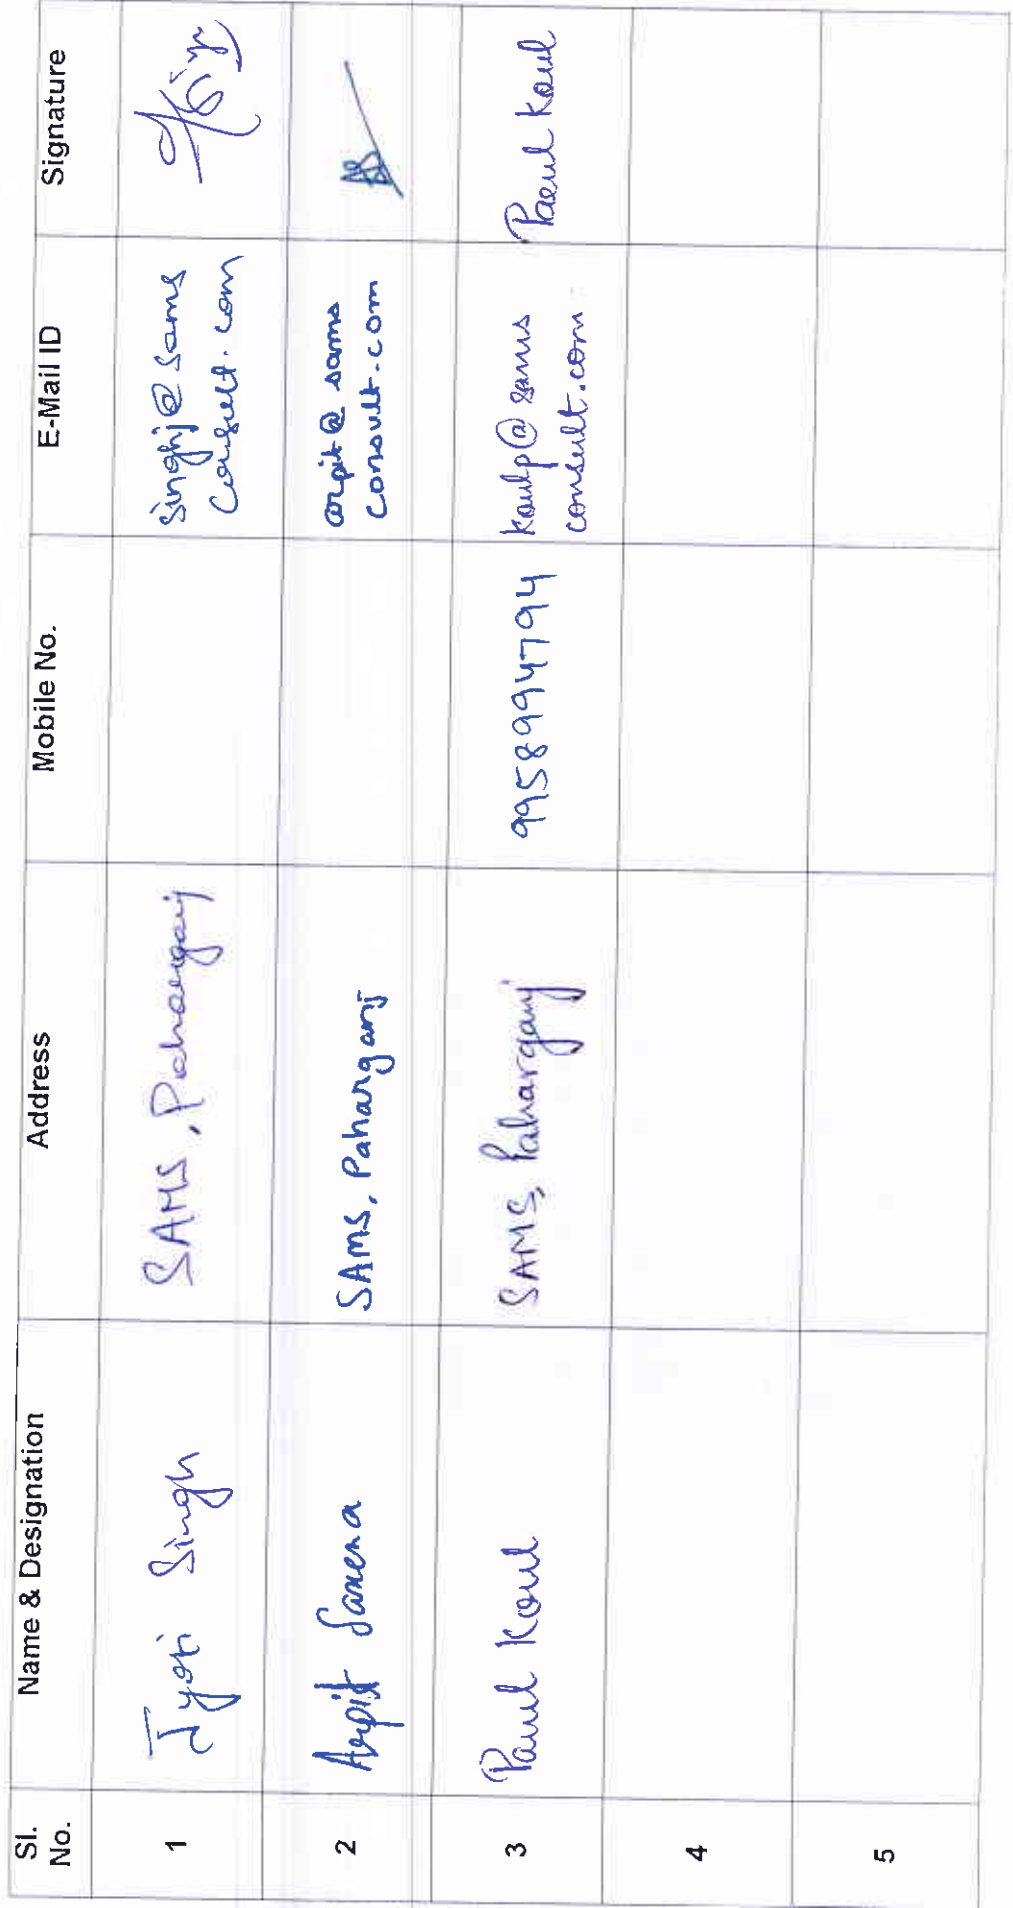 Sl. No. Name & Designation Address Mobile No. E-Mail ID Signature
1 Jyoti Singh SAMS, Paharganj singhj@sams
consult.com
2 Arpit Saxena SAMS, Paharganj arpit@sams
consult.com
3 Parul Koul SAMS, Paharganj 9958994794 koulp@sams
consult.com Parul Koul
4
5